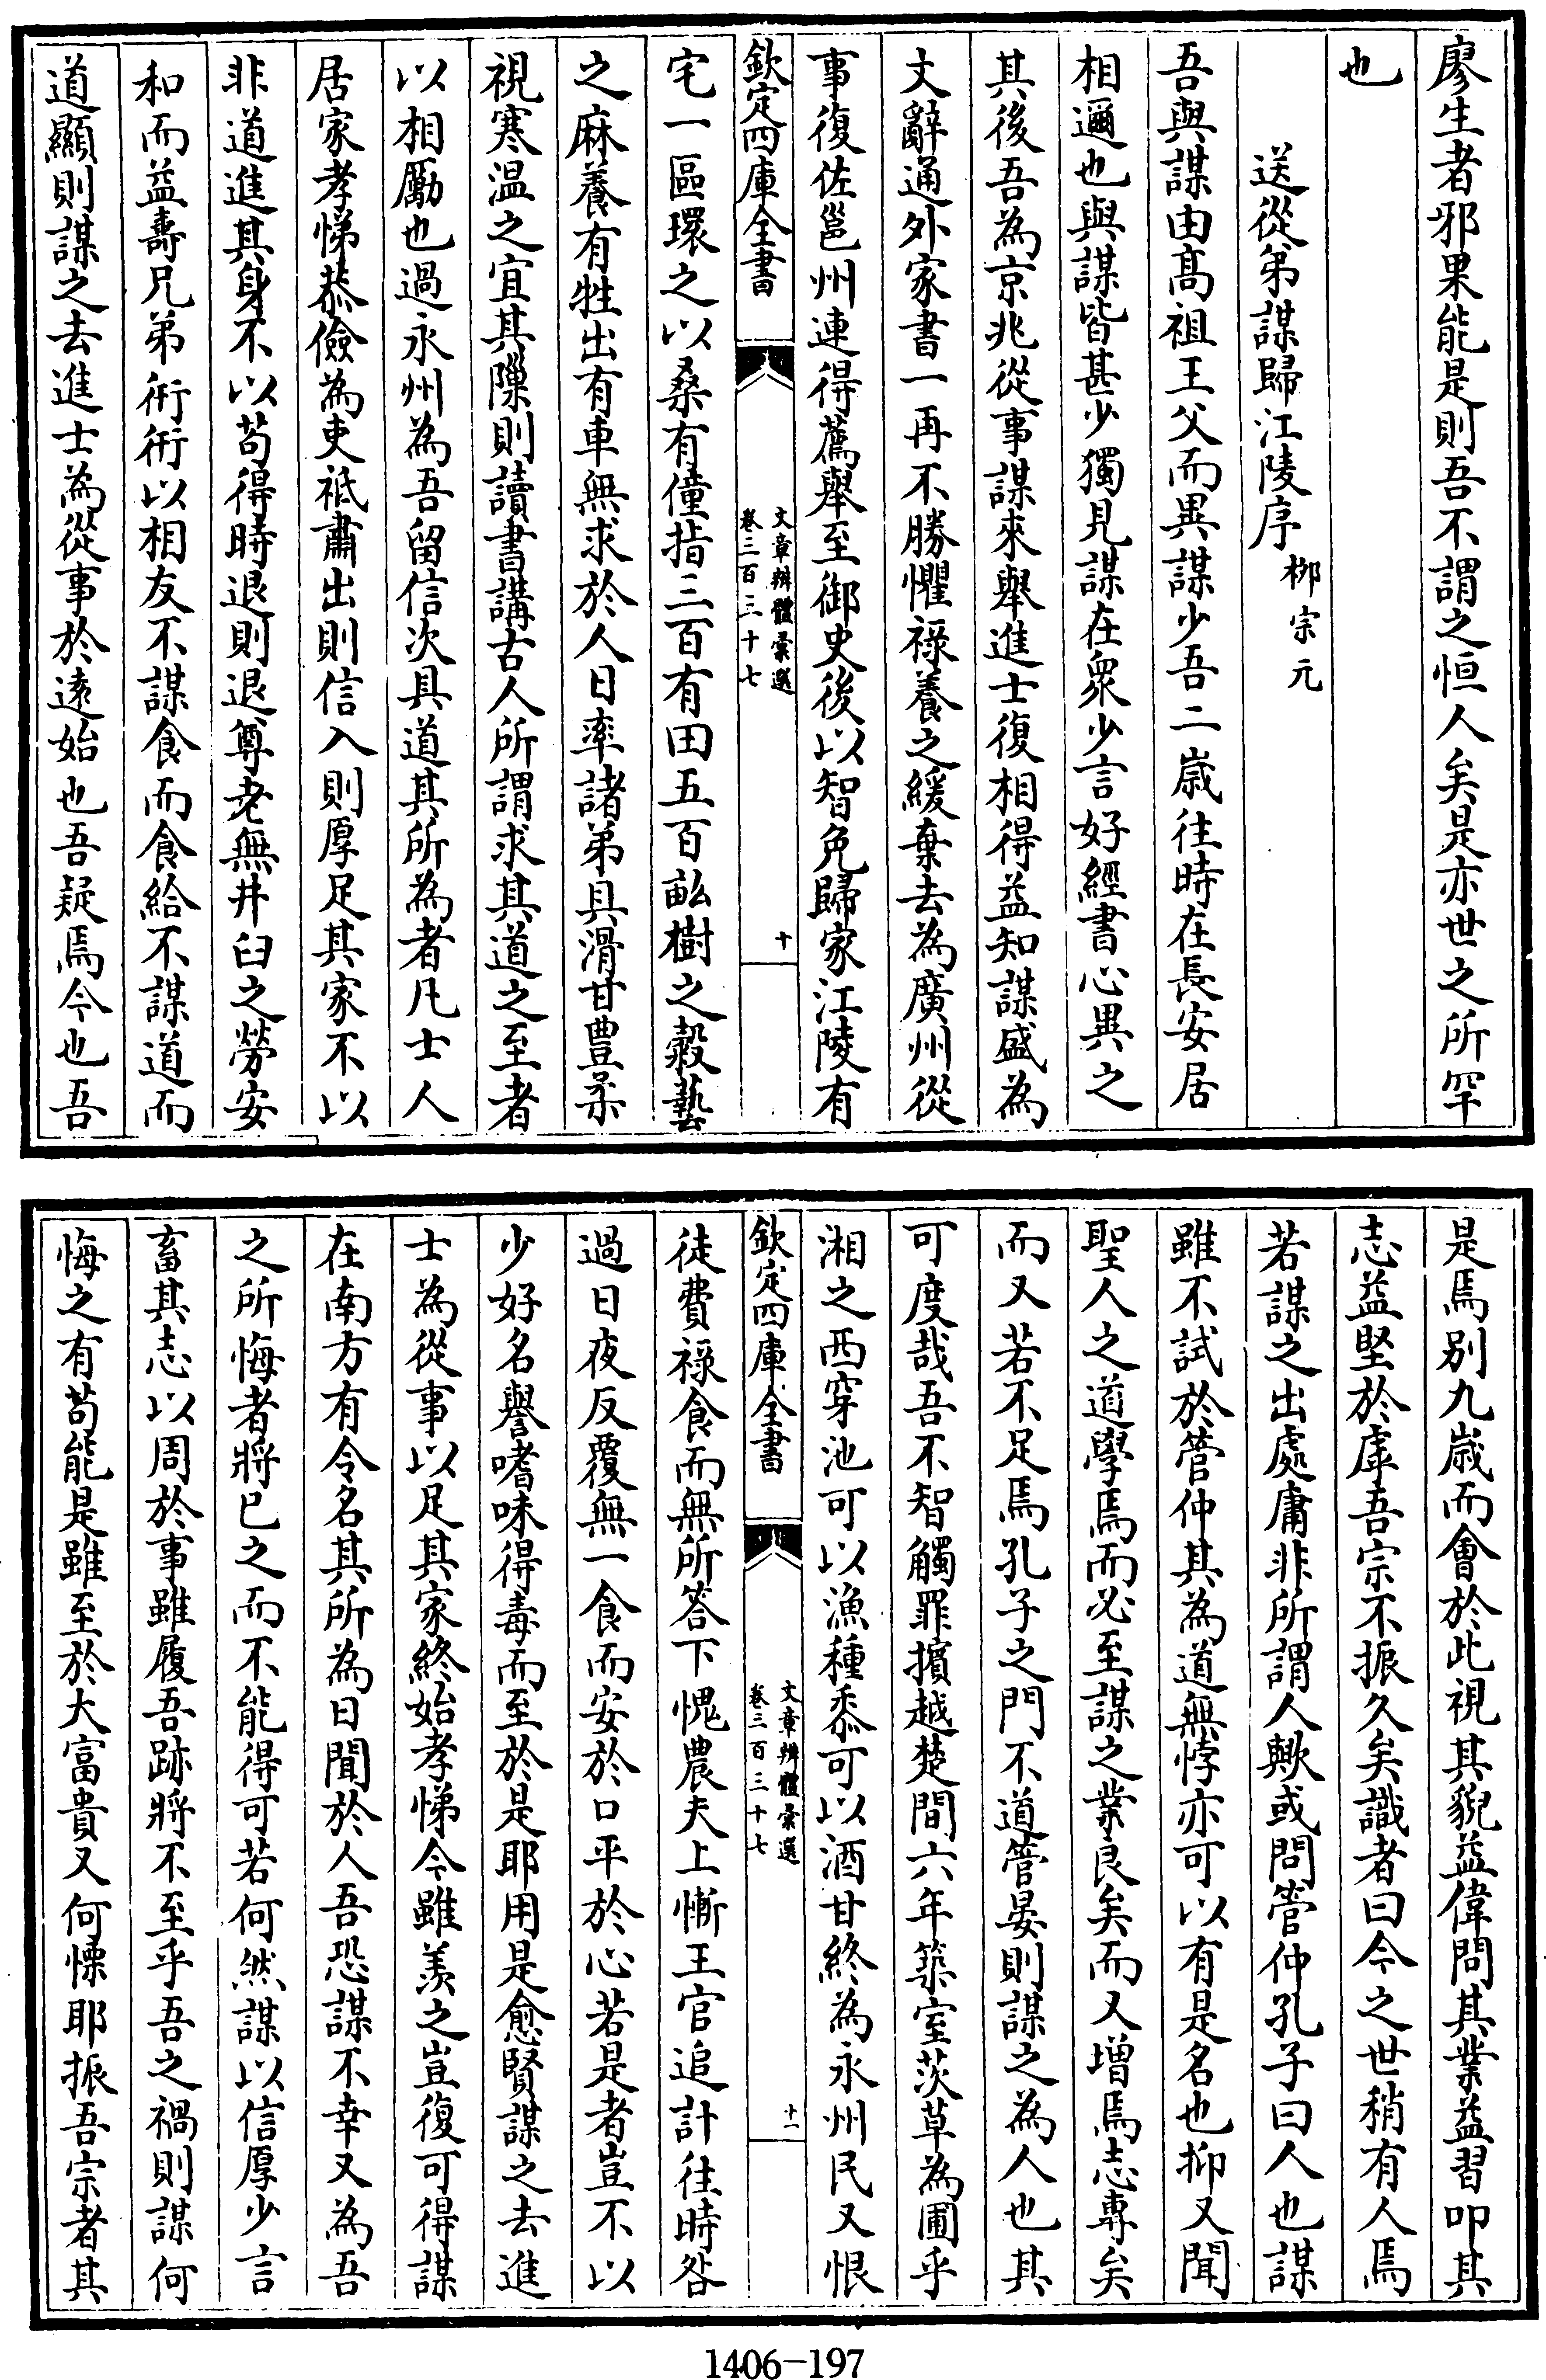 廖生者邪果能是則吾不謂之恒人矣是亦世之所罕
也
送從弟謀歸江陵序 栁宗元
吾與謀由髙祖王父而異謀少吾二嵗往時在長安居
相邇也與謀皆甚少獨見謀在衆少言好經書心異之
其後吾為京兆從事謀來舉進士復相得益知謀盛為
文辭通外家書一再不勝懼禄養之緩棄去為廣州從
事復佐邕州連得薦舉至御史後以智免歸家江陵有
欽定四庫全書
文章辨體彚選
卷三百三十七
十
宅一區環之以桑有僮指三百有田五百畝樹之穀藝
之麻養有牲出有車無求於人日率諸弟具滑甘豊柔
視寒温之宜其隟則讀書講古人所謂求其道之至者
以相勵也過永州為吾留信次具道其所為者凡士人
居家孝悌恭儉為吏祗肅出則信入則厚足其家不以
非道進其身不以苟得時退則退尊老無井臼之勞安
和而益壽兄弟衎衎以相友不謀食而食給不謀道而
道顯則謀之去進士為從事於逺始也吾疑焉今也吾
是焉别九嵗而會於此視其貌益偉問其業益習叩其
志益堅於虖吾宗不振久矣識者曰今之世稍有人焉
若謀之出處庸非所謂人歟或問管仲孔子曰人也謀
雖不試於管仲其為道無悖亦可以有是名也抑又聞
聖人之道學焉而必至謀之業良矣而又増焉志專矣
而又若不足焉孔子之門不道管晏則謀之為人也其
可度哉吾不智觸罪擯越楚間六年築室茨草為圃乎
湘之西穿池可以漁種黍可以酒甘終為永州民又恨
欽定四庫全書
文章辨體彚選
卷三百三十七
十一
徒費禄食而無所答下愧農夫上慚王官追計往時咎
過日夜反覆無一食而安於口平於心若是者豈不以
少好名譽嗜味得毒而至於是耶用是愈賢謀之去進
士為從事以足其家終始孝悌今雖羡之豈復可得謀
在南方有令名其所為日聞於人吾恐謀不幸又為吾
之所悔者將已之而不能得可若何然謀以信厚少言
畜其志以周於事雖履吾跡將不至乎吾之禍則謀何
悔之有苟能是雖至於大富貴又何慄耶振吾宗者其
1406-197